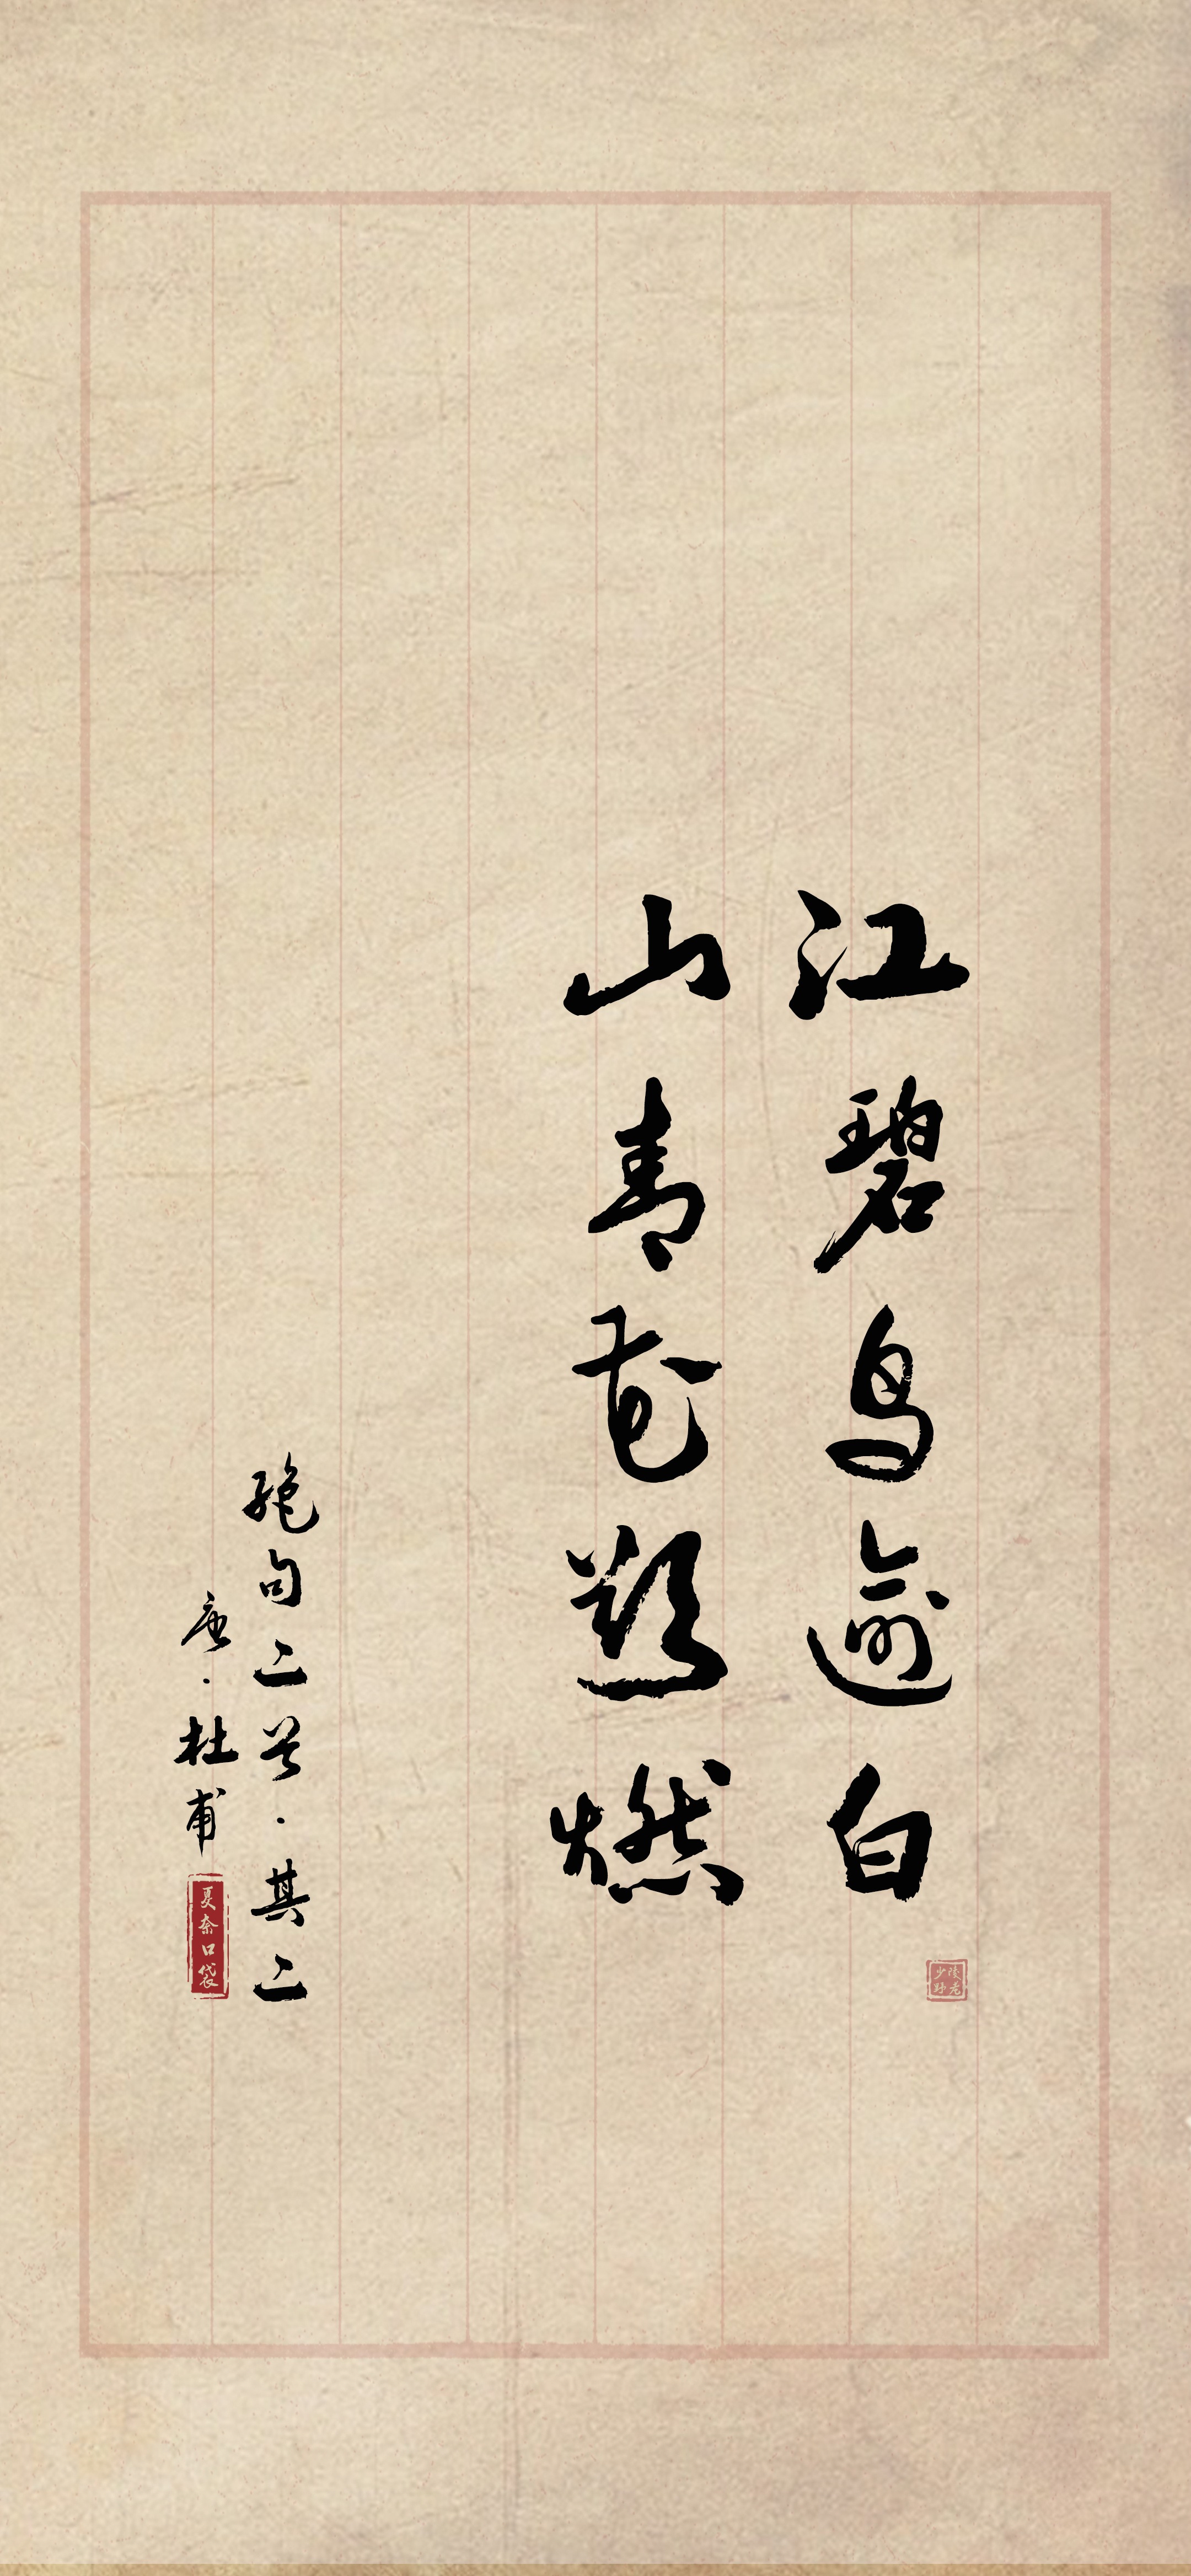 江碧鸟逾白
山青花欲燃
绝句二首·其二
唐·杜甫
夏奈口袋
少陵野老